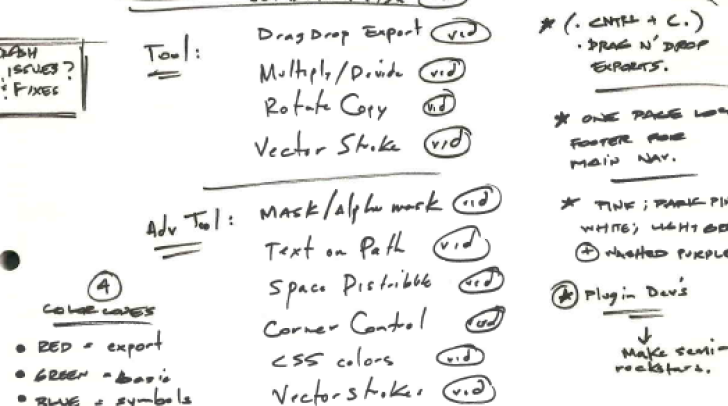 Tool:
Drag Drop Export vid
Multiply/Divide vid
Rotate Copy vid
Vector Stroke vid
Adv Tool:
MASK/Alpha mask vid
Text on Path vid
Space Distribble vid
Corner Control vid
CSS colors vid
Vector strokes vid
ISSUES?
FIXES
4
COLOR CODES
• RED = export
• GREEN = basic
• BLUE = symbols
* (. CNTRL + C.)
• DRAG N' DROP
EXPORTS.
* ONE PAGE
FOOTER FOR
MAIN NAV.
* PINK ; DARK
WHITE; LIGHT
+ WASHED PURPLE
* Plugin Dev's
↓
Make semi-
rockstars.